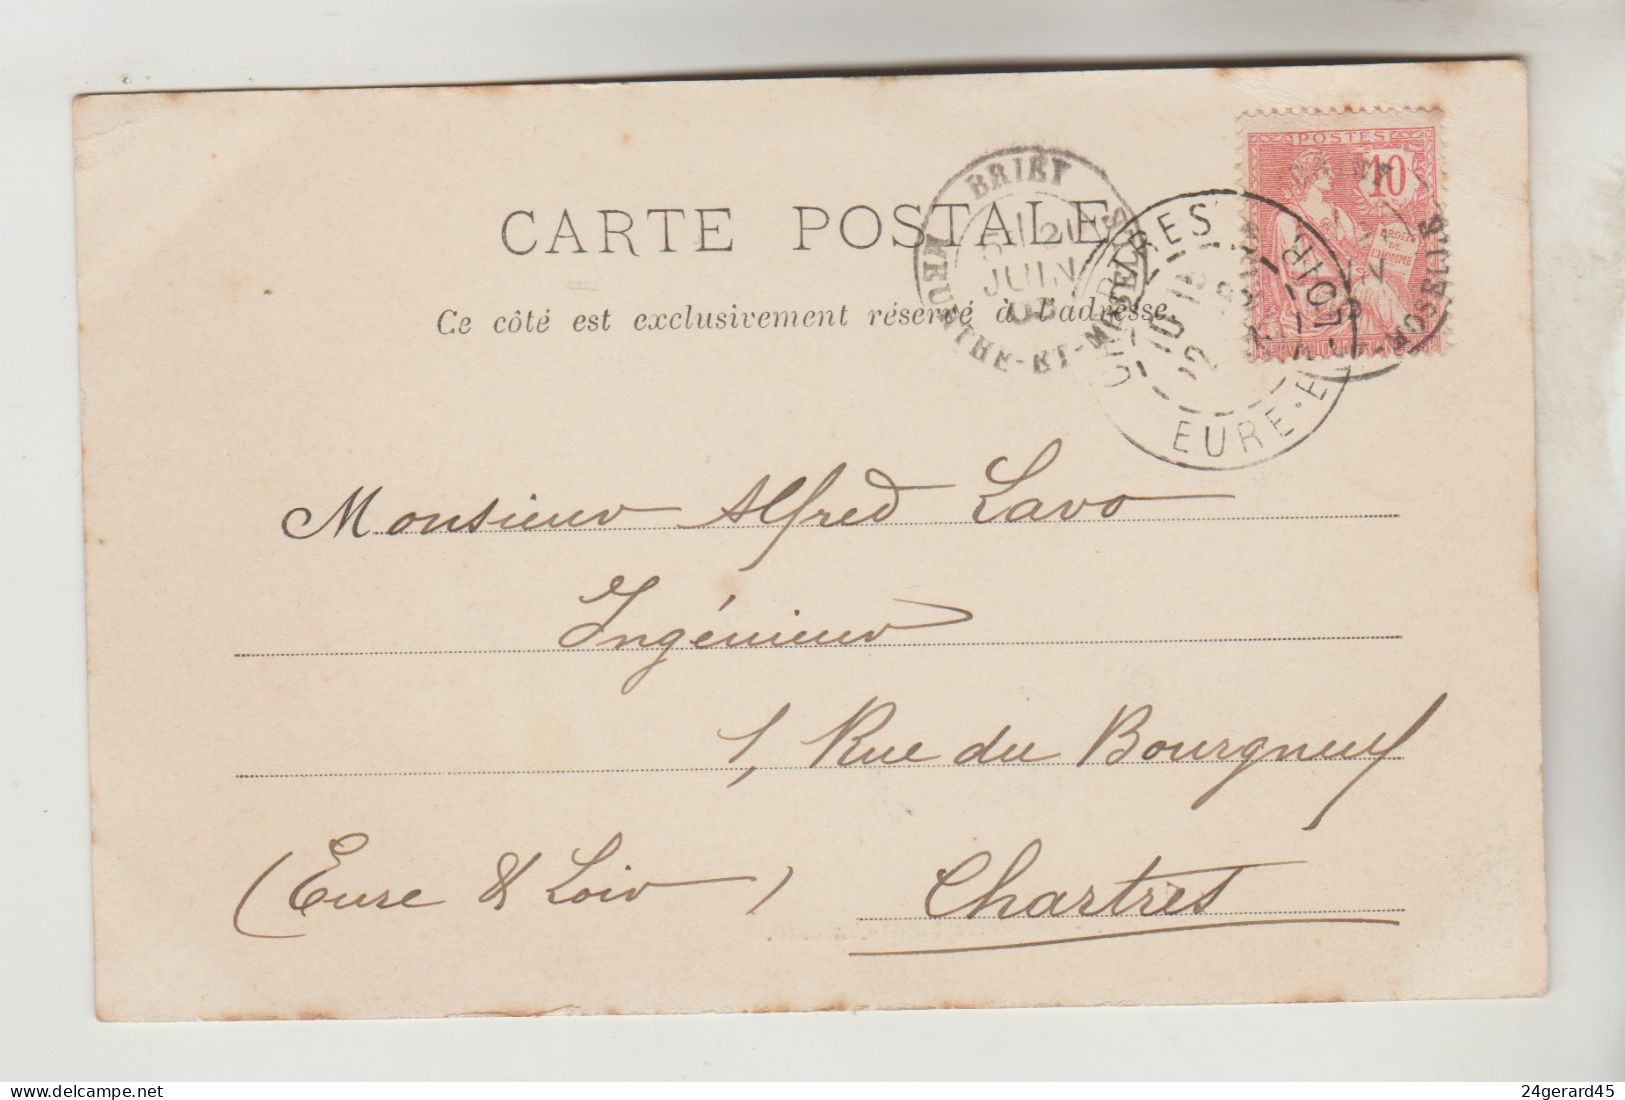 POSTES
10
DROITS
DE
L'HOMME
BRIEY
JUIN
MEURTHE-ET-MOSELLE
CARTE POSTALE
Ce côté est exclusivement réservé à l'adresse.
CHARTRES
EURE-ET-LOIR
MOSELLE
Monsieur Alfred Lavo
Ingénieur
1, Rue du Bourgneuf
(Eure & Loir) Chartres
24gerard45